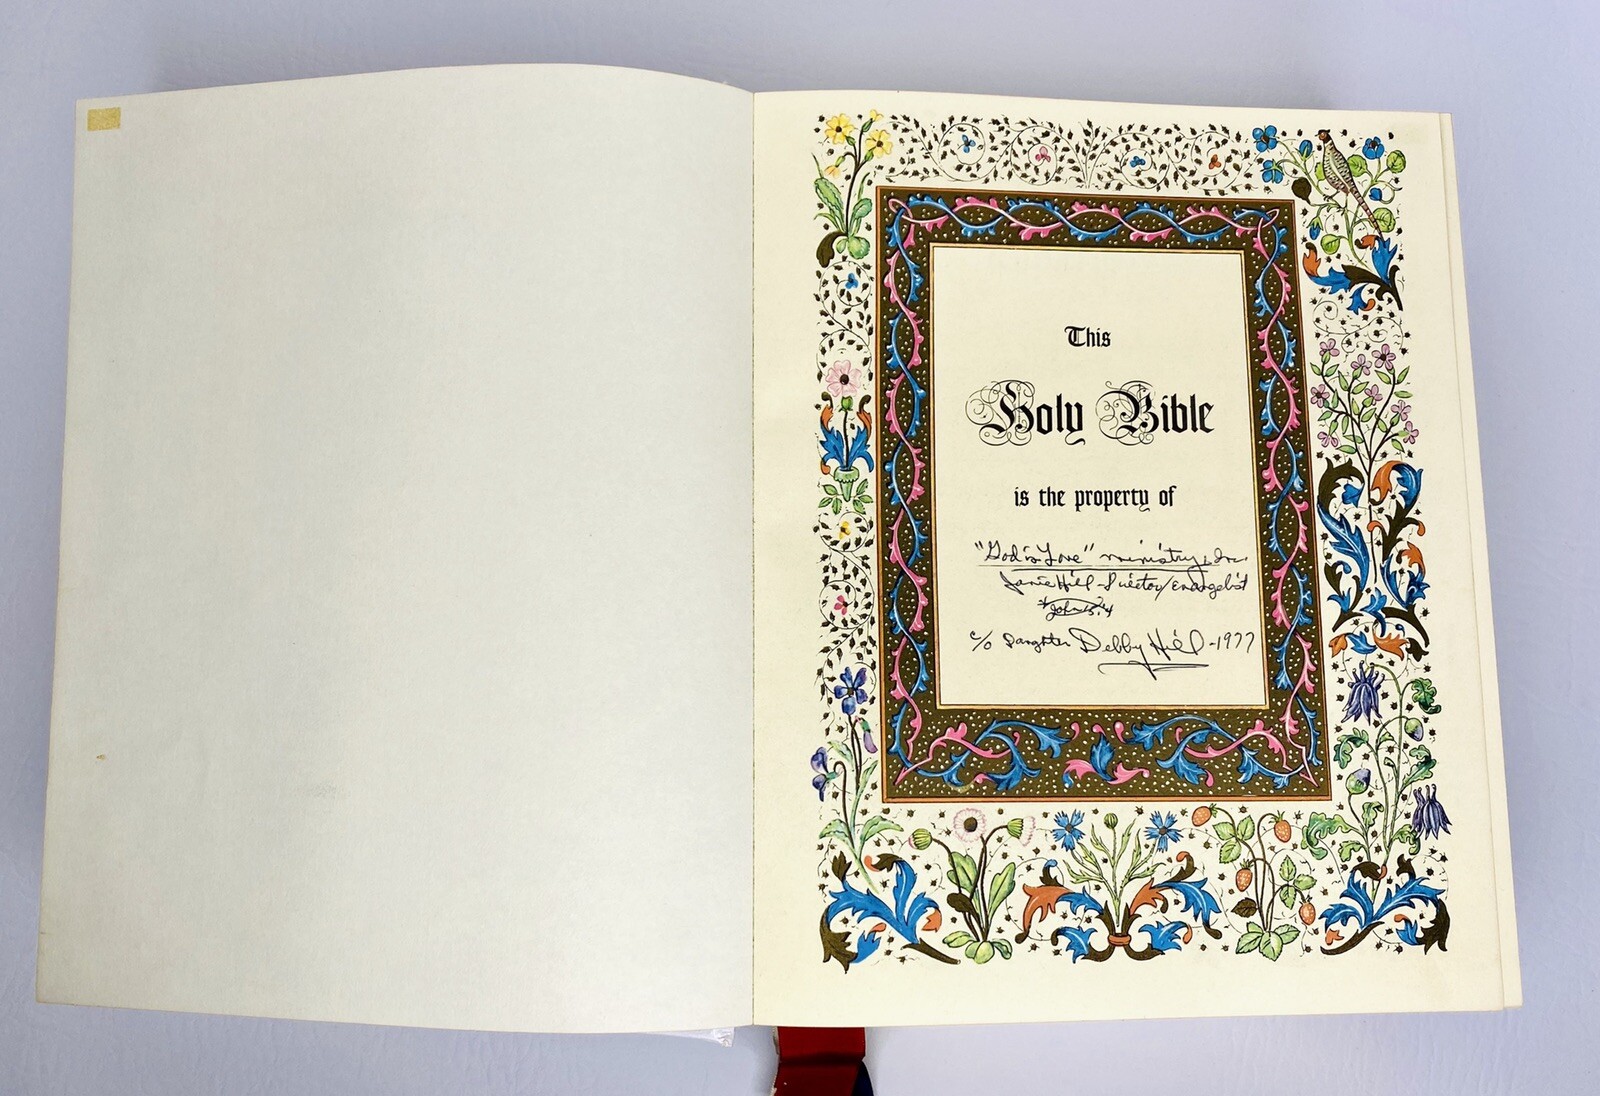 This
Holy Bible
is the property of
"God is Love" ministry, Inc.
Janie Hill - Director/Evangelist
John
c/o Daughter Debby Hill - 1977